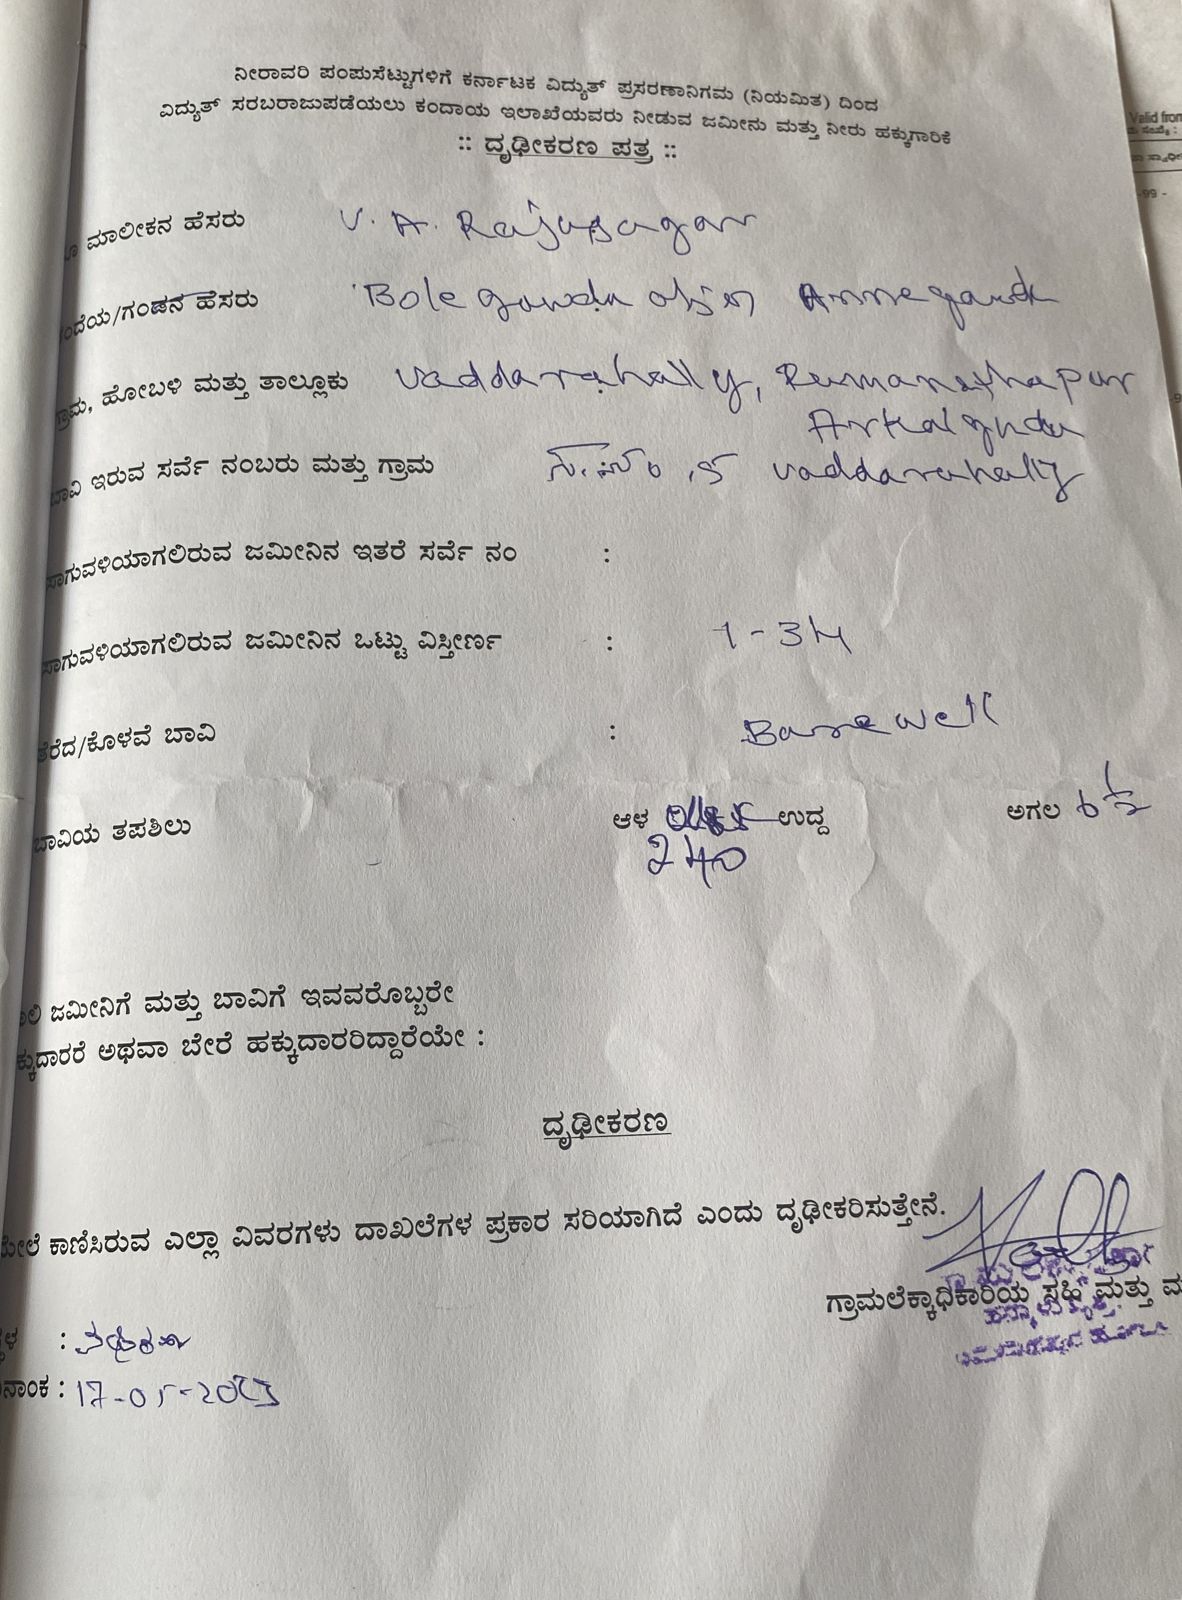 ನೀರಾವರಿ ಪಂಪುಸೆಟ್ಟುಗಳಿಗೆ ಕರ್ನಾಟಕ ವಿದ್ಯುತ್ ಪ್ರಸರಣಾನಿಗಮ (ನಿಯಮಿತ) ದಿಂದ
ವಿದ್ಯುತ್ ಸರಬರಾಜುಪಡೆಯಲು ಕಂದಾಯ ಇಲಾಖೆಯವರು ನೀಡುವ ಜಮೀನು ಮತ್ತು ನೀರು ಹಕ್ಕುಗಾರಿಕೆ
:: ದೃಢೀಕರಣ ಪತ್ರ ::
ಮಾಲೀಕನ ಹೆಸರು V. A. Rajasagar
/ಗಂಡನ ಹೆಸರು Bolegowda Annegowda
ಗ್ರಾಮ, ಹೋಬಳಿ ಮತ್ತು ತಾಲ್ಲೂಕು Vaddarahally, Ramanathapur
Arkalgudu
ಬಾವಿ ಇರುವ ಸರ್ವೆ ನಂಬರು ಮತ್ತು ಗ್ರಾಮ Vaddarahally
ಸಾಗುವಳಿಯಾಗಲಿರುವ ಜಮೀನಿನ ಇತರೆ ಸರ್ವೆ ನಂ :
ಸಾಗುವಳಿಯಾಗಲಿರುವ ಜಮೀನಿನ ಒಟ್ಟು ವಿಸ್ತೀರ್ಣ : 1-34
ತೆರೆದ/ಕೊಳವೆ ಬಾವಿ : Borewell
ಬಾವಿಯ ತಪಶಿಲು ಆಳ ಉದ್ದ ಅಗಲ 6 1/2
240
ಜಮೀನಿಗೆ ಮತ್ತು ಬಾವಿಗೆ ಇವವರೊಬ್ಬರೇ
ಹಕ್ಕುದಾರರೆ ಅಥವಾ ಬೇರೆ ಹಕ್ಕುದಾರರಿದ್ದಾರೆಯೇ :
ದೃಢೀಕರಣ
ಮೇಲೆ ಕಾಣಿಸಿರುವ ಎಲ್ಲಾ ವಿವರಗಳು ದಾಖಲೆಗಳ ಪ್ರಕಾರ ಸರಿಯಾಗಿದೆ ಎಂದು ದೃಢೀಕರಿಸುತ್ತೇನೆ.
ಗ್ರಾಮಲೆಕ್ಕಾಧಿಕಾರಿಯ ಸಹಿ ಮತ್ತು
:
: 17-05-2023
Valid from